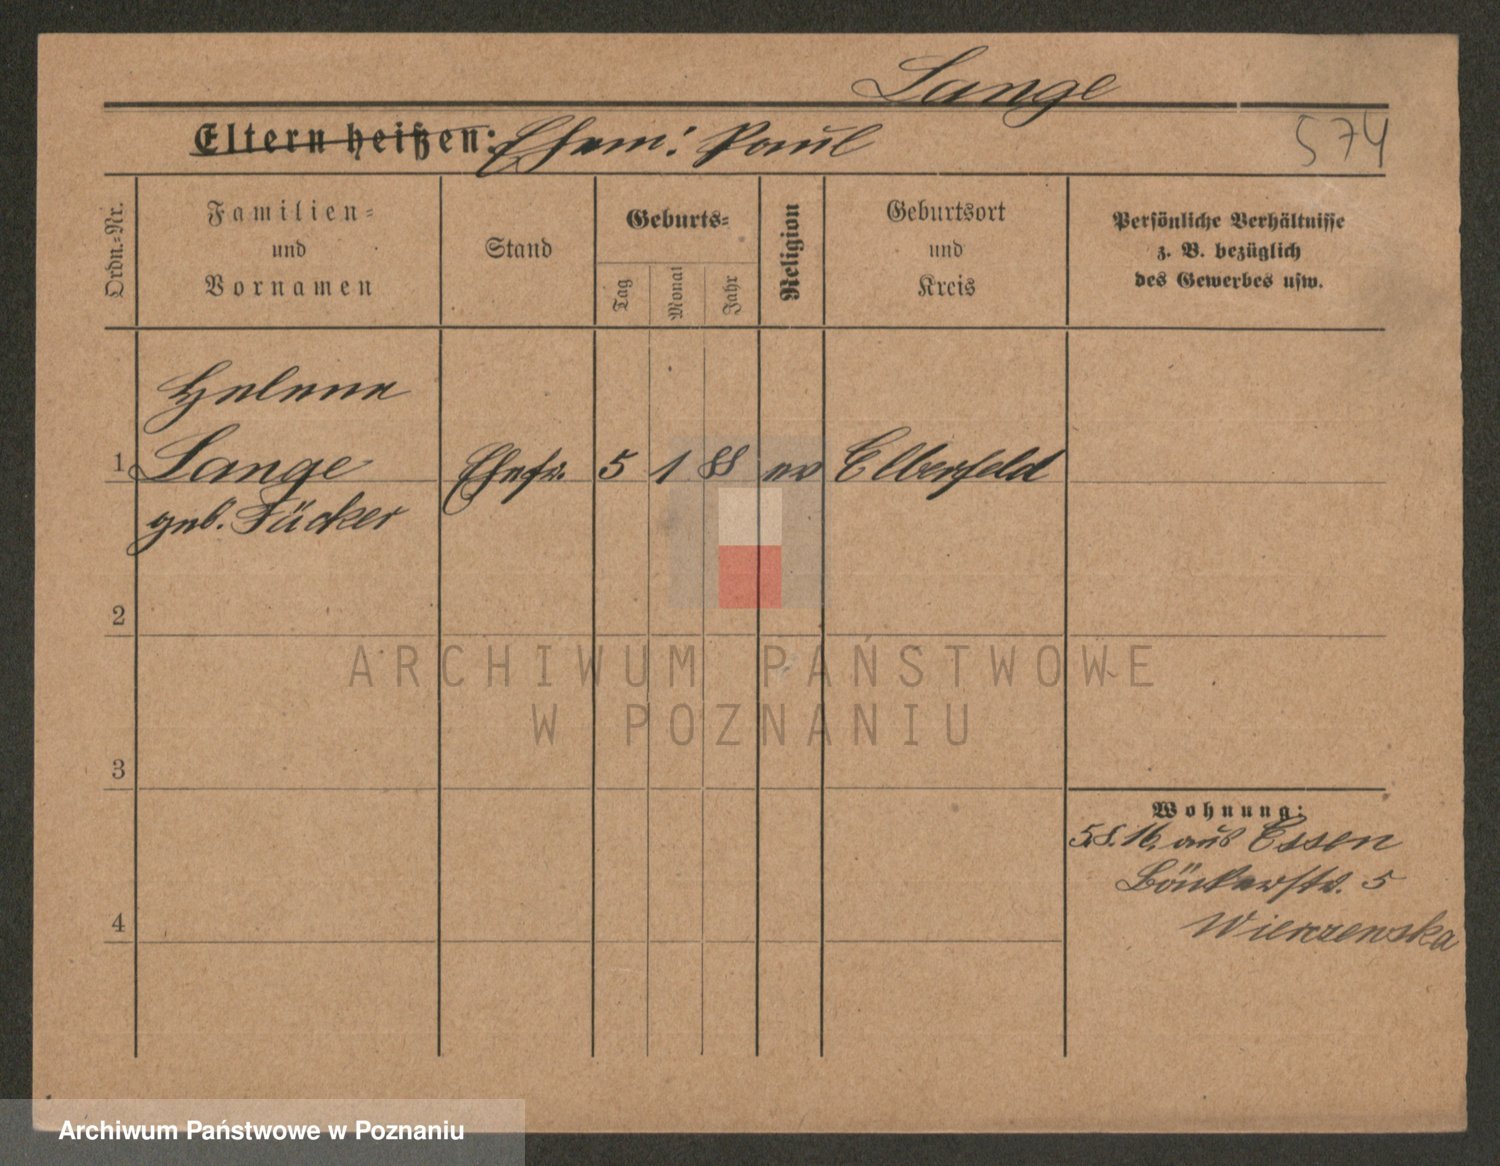 Lange
Eltern heißen: Ehem: Paul
574
Ordn.-Nr.
Familien-
und
Vornamen
Stand
Geburts-
Tag
Monat
Jahr
Religion
Geburtsort
und
Kreis
Persönliche Verhältnisse
z. B. bezüglich
des Gewerbes usw.
Helene
1 Lange Ehefr. 5 1 88 ev Elberfeld
geb. Fücker
2
ARCHIWUM PAŃSTWOWE
W POZNANIU
3
Wohnung:
5.8.16. aus Essen
Bönkerstr. 5
4
Wierzenska
Archiwum Państwowe w Poznaniu